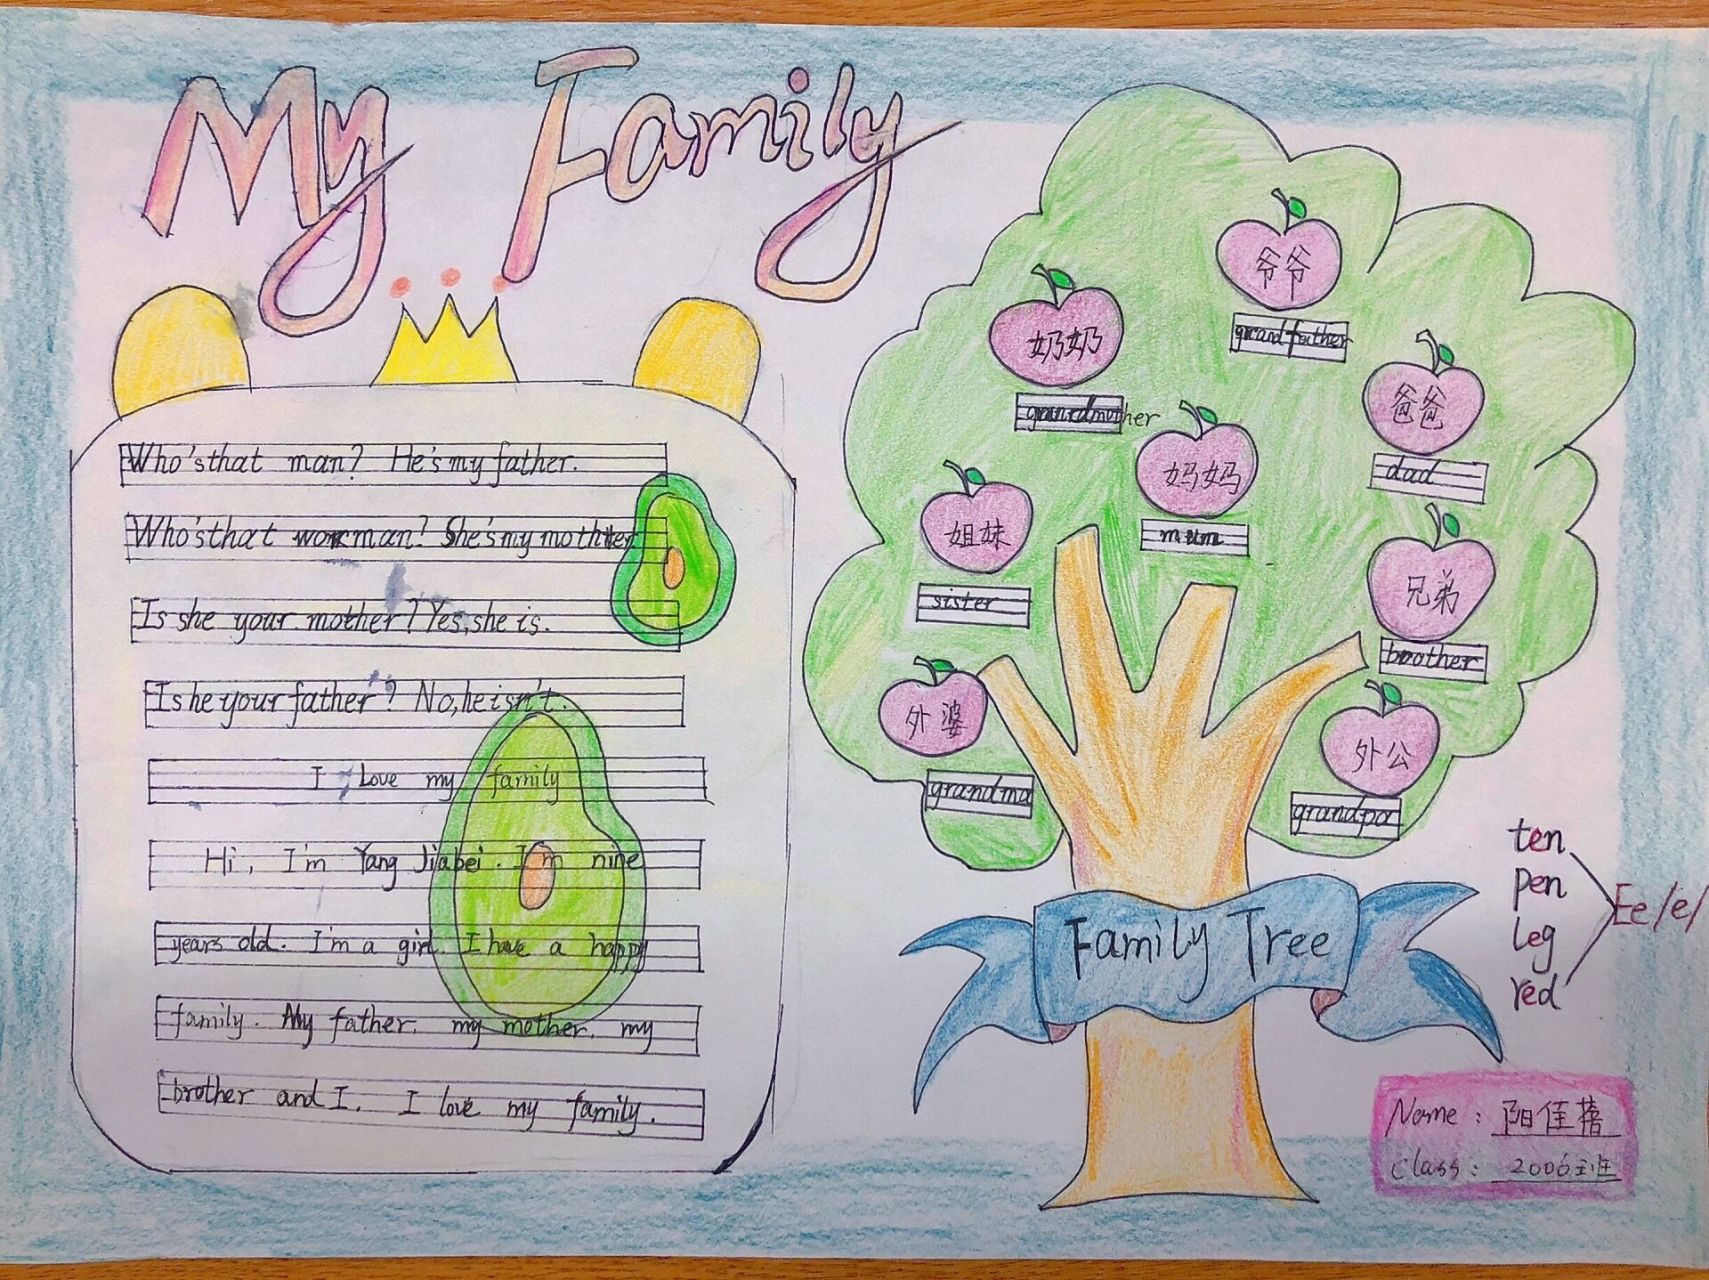 My Family
Who's that man? He's my father.
Who's that woman? She's my mother
Is she your mother? Yes, she is.
Is he your father? No, he isn't.
I Love my family
Hi, I'm Yang Jiabei. I'm nine
years old. I'm a girl. I have a happy
family. My father, my mother, my
brother and I. I love my family.
爷爷
grandfather
奶奶
grandmother
爸爸
dad
妈妈
mum
姐妹
sister
兄弟
brother
外婆
grandma
外公
grandpa
Family Tree
ten
pen
leg
red
Ee /e/
Name: 阳佳蓓
Class: 2006班